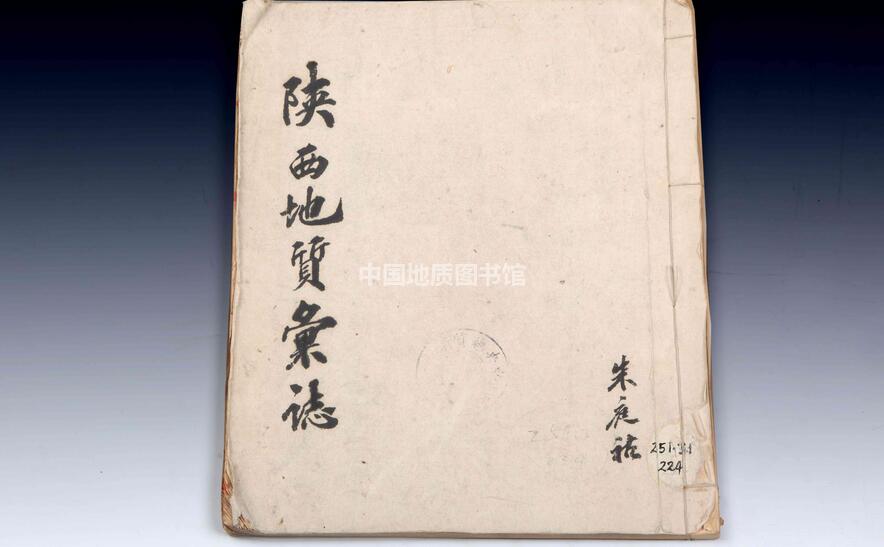 陕西地質彙誌
中国地质图书馆
朱庭祜
224